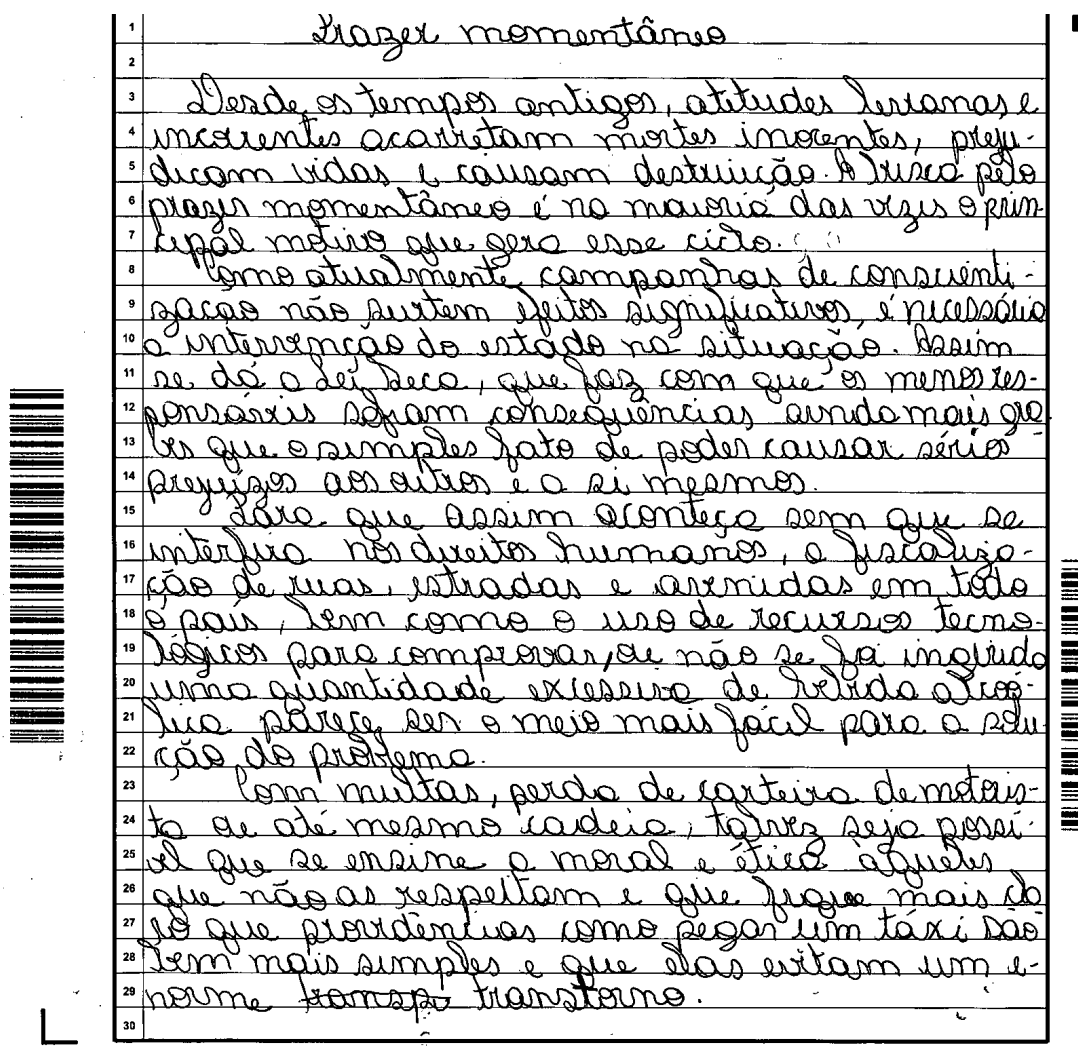 1 Prazer momentâneo
2
3 Desde os tempos antigos, atitudes levianas e
4 incoerentes acarretam mortes inocentes, preju-
5 dicam vidas e causam destruição. A busca pelo
6 prazer momentâneo é na maioria das vezes o prin-
7 cipal motivo que gera esse ciclo.
8 Como atualmente, campanhas de conscienti-
9 zacao não surtem efeitos significativos, é necessária
10 a intervenção do estado na situação. Assim
11 se dá a Lei Seca, que faz com que os menos res-
12 ponsáveis sofram consequências ainda mais gra
13 ves que o simples fato de poder causar sérios
14 prejuízos aos outros e a si mesmos.
15 Para que assim aconteça sem que se
16 interfira nos direitos humanos, a fiscaliza-
17 ção de ruas, estradas e avenidas em todo
18 o país, bem como o uso de recursos tecno-
19 lógicos para comprovar, ou não se foi ingerida
20 uma quantidade excessiva de bebida alcoó-
21 lica parece ser o meio mais fácil para a solu
22 ção do problema.
23 Com multas, perda de carteira de motoris-
24 ta ou até mesmo cadeia, talvez seja possí-
25 vel que se ensine a moral e ética àqueles
26 que não as respeitam e que fique mais cla
27 ro que providências como pegar um táxi são
28 bem mais simples e que elas evitam um e-
29 norme transpo transtorno.
30